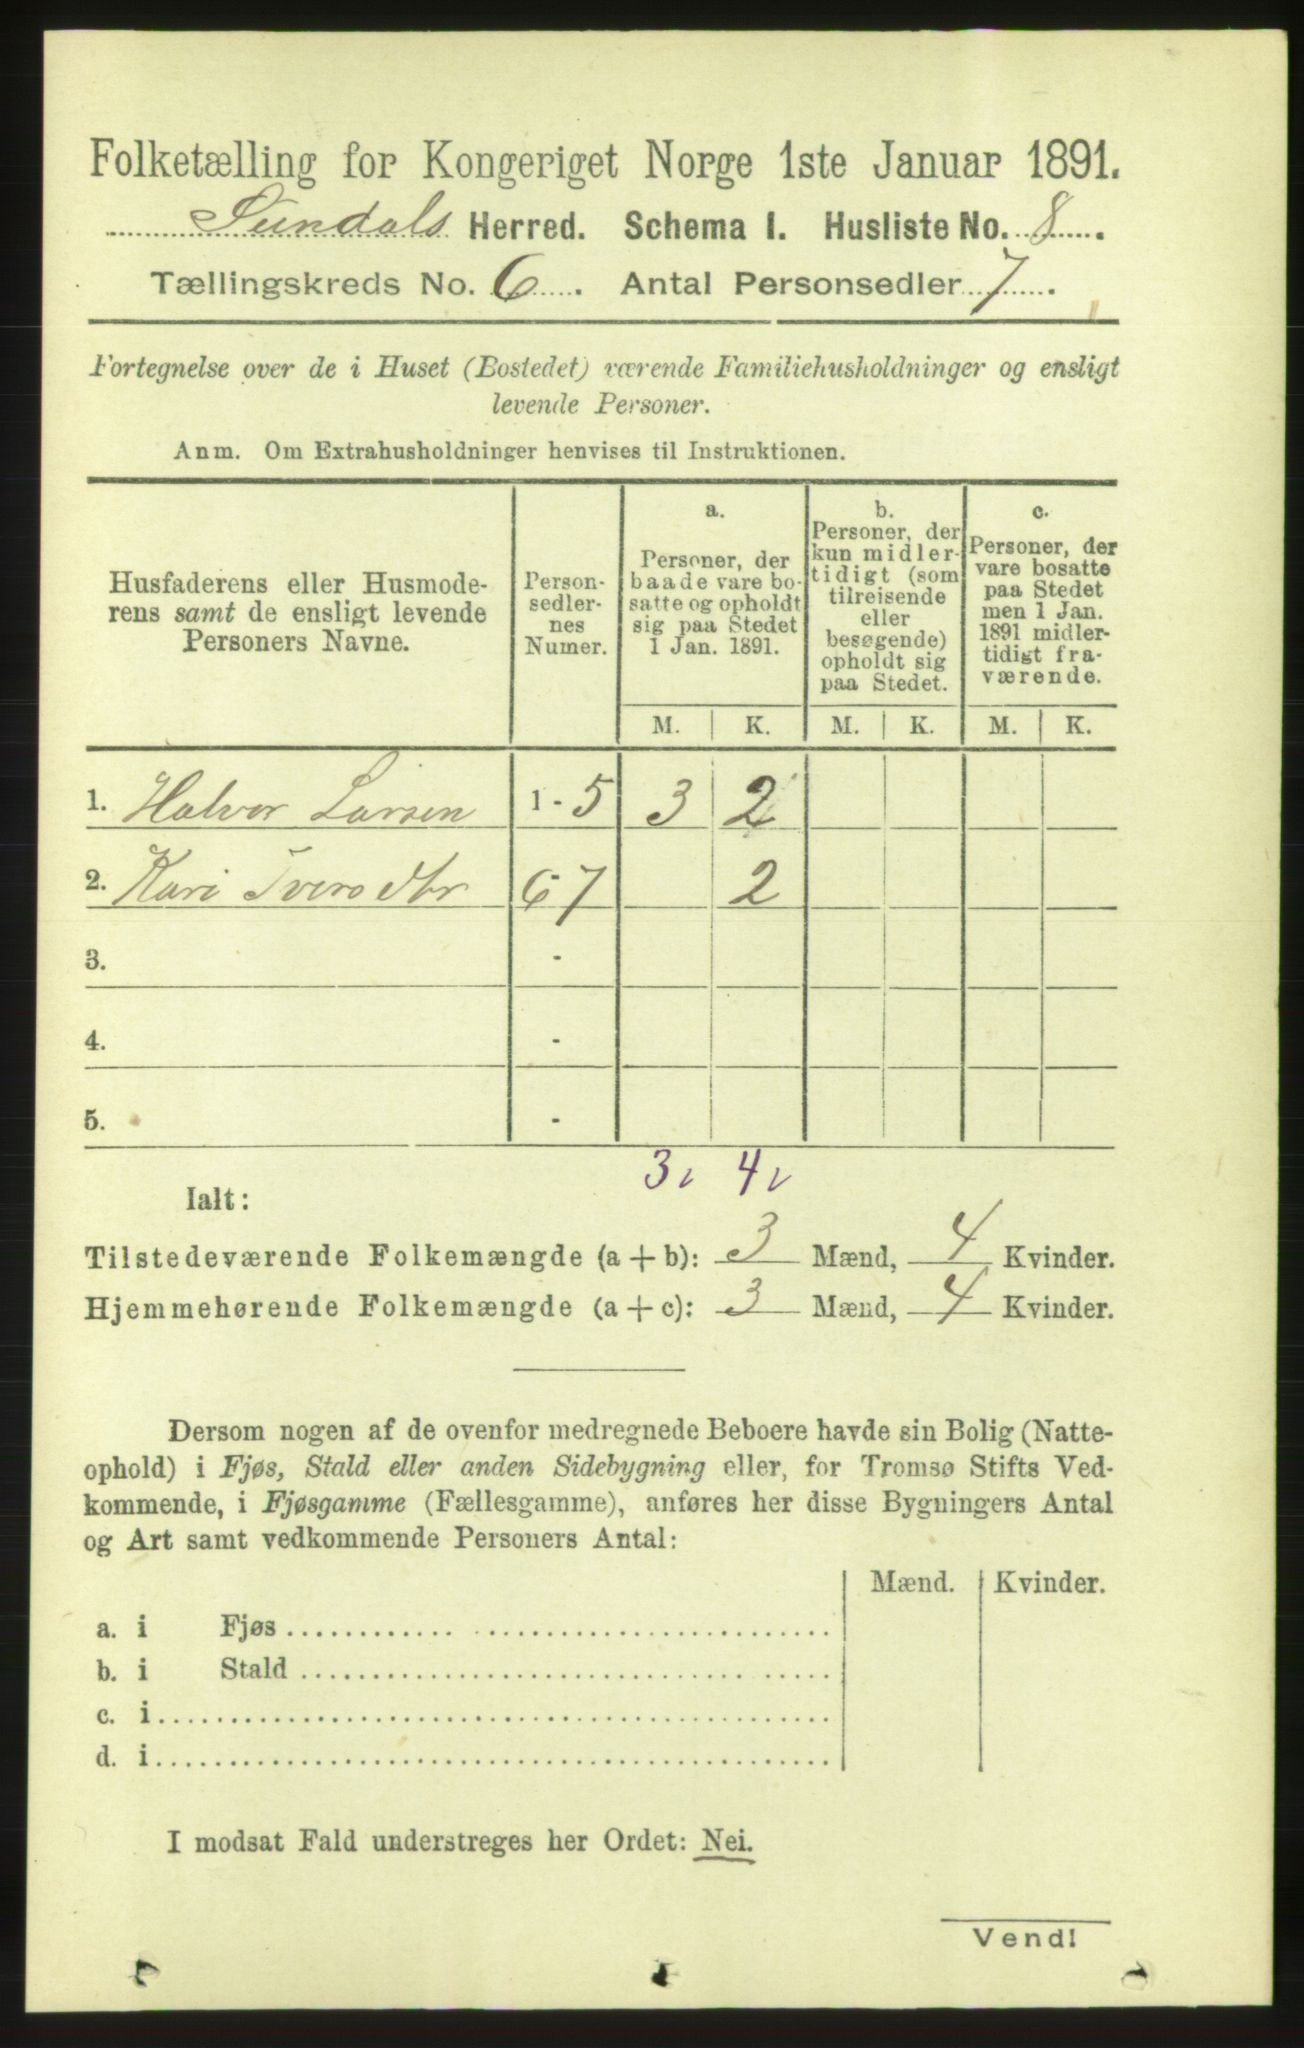 Folketælling for Kongeriget Norge 1ste Januar 1891.
Sundals Herred. Schema I. Husliste No. 8.
Tællingskreds No. 6. Antal Personsedler 7.
Fortegnelse over de i Huset (Bostedet) værende Familiehusholdninger og ensligt
levende Personer.
Anm. Om Extrahusholdninger henvises til Instruktionen.
Husfaderens eller Husmode-
rens samt de ensligt levende
Personers Navne.
Person-
sedler-
nes
Numer.
a.
Personer, der
baade vare bo-
satte og opholdt
sig paa Stedet
1 Jan. 1891.
b.
Personer, der
kun midler-
tidigt (som
tilreisende
eller
besøgende)
opholdt sig
paa Stedet.
c.
Personer, der
vare bosatte
paa Stedet
men 1 Jan.
1891 midler-
tidigt fra-
værende.
M. K. M. K. M. K.
1. Halvor Larsen 1 - 5 3 2
2. Kari 6 7 2
3. -
4. -
5. -
3 4
Ialt:
Tilstedeværende Folkemængde (a + b): 3 Mænd, 4 Kvinder.
Hjemmehørende Folkemængde (a + c): 3 Mænd, 4 Kvinder.
Dersom nogen af de ovenfor medregnede Beboere havde sin Bolig (Natte-
ophold) i Fjøs, Stald eller anden Sidebygning eller, for Tromsø Stifts Ved-
kommende, i Fjøsgamme (Fællesgamme), anføres her disse Bygningers Antal
og Art samt vedkommende Personers Antal:
Mænd. Kvinder.
a. i Fjøs
b. i Stald
c. i
d. i
I modsat Fald understreges her Ordet: Nei.
Vend!